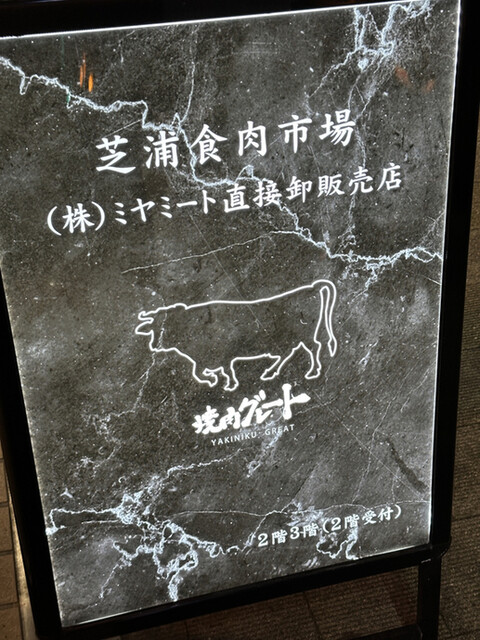 芝浦食肉市場
(株)ミヤミート直接卸販売店
焼肉グレート
YAKINIKU GREAT
2階3階(2階受付)